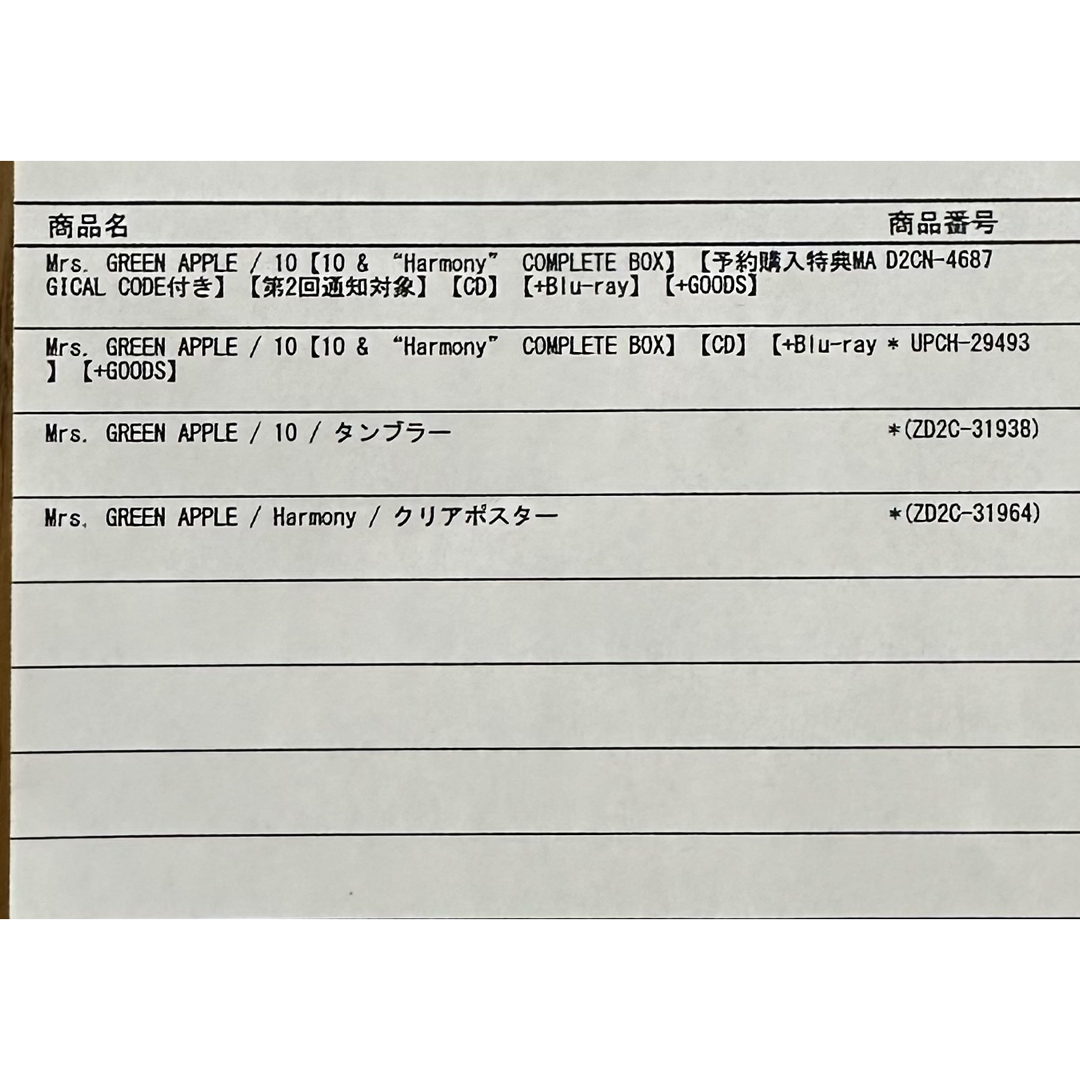 商品名 商品番号
Mrs. GREEN APPLE / 10【10 & “Harmony” COMPLETE BOX】【予約購入特典MA D2CN-4687
GICAL CODE付き】【第2回通知対象】【CD】【+Blu-ray】【+GOODS】
Mrs. GREEN APPLE / 10【10 & “Harmony” COMPLETE BOX】【CD】【+Blu-ray * UPCH-29493
】【+GOODS】
Mrs. GREEN APPLE / 10 / タンブラー *(ZD2C-31938)
Mrs. GREEN APPLE / Harmony / クリアポスター *(ZD2C-31964)